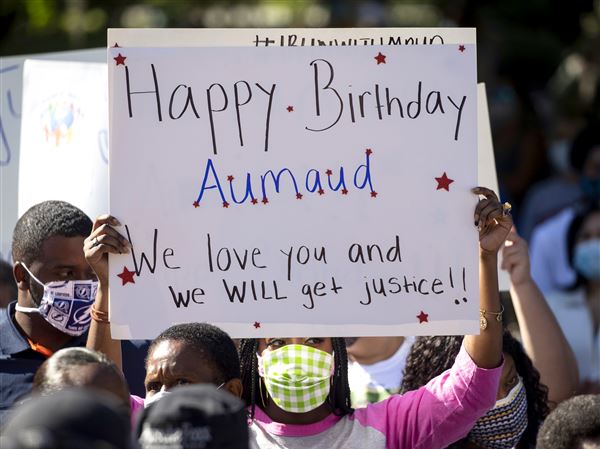 #IRUNWITHMAUD
Happy Birthday
Aumaud
We love you and
we WILL get justice!!